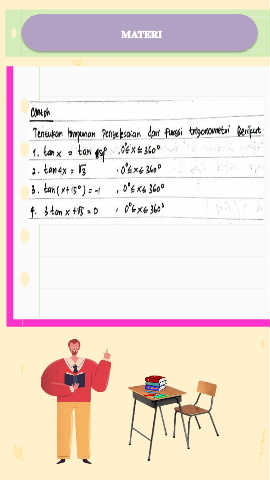 MATERI
Contoh
Tentukan himpunan penyelesaian dari fungsi trigonometri berikut
1. tan x = tan , 0° ≤ x ≤ 360°
2. tan 4x = √3 , 0° ≤ x ≤ 360°
3. tan (x+15°) = -1 , 0° ≤ x ≤ 360°
4. 3 tan x + √3 = 0 , 0° ≤ x ≤ 360°